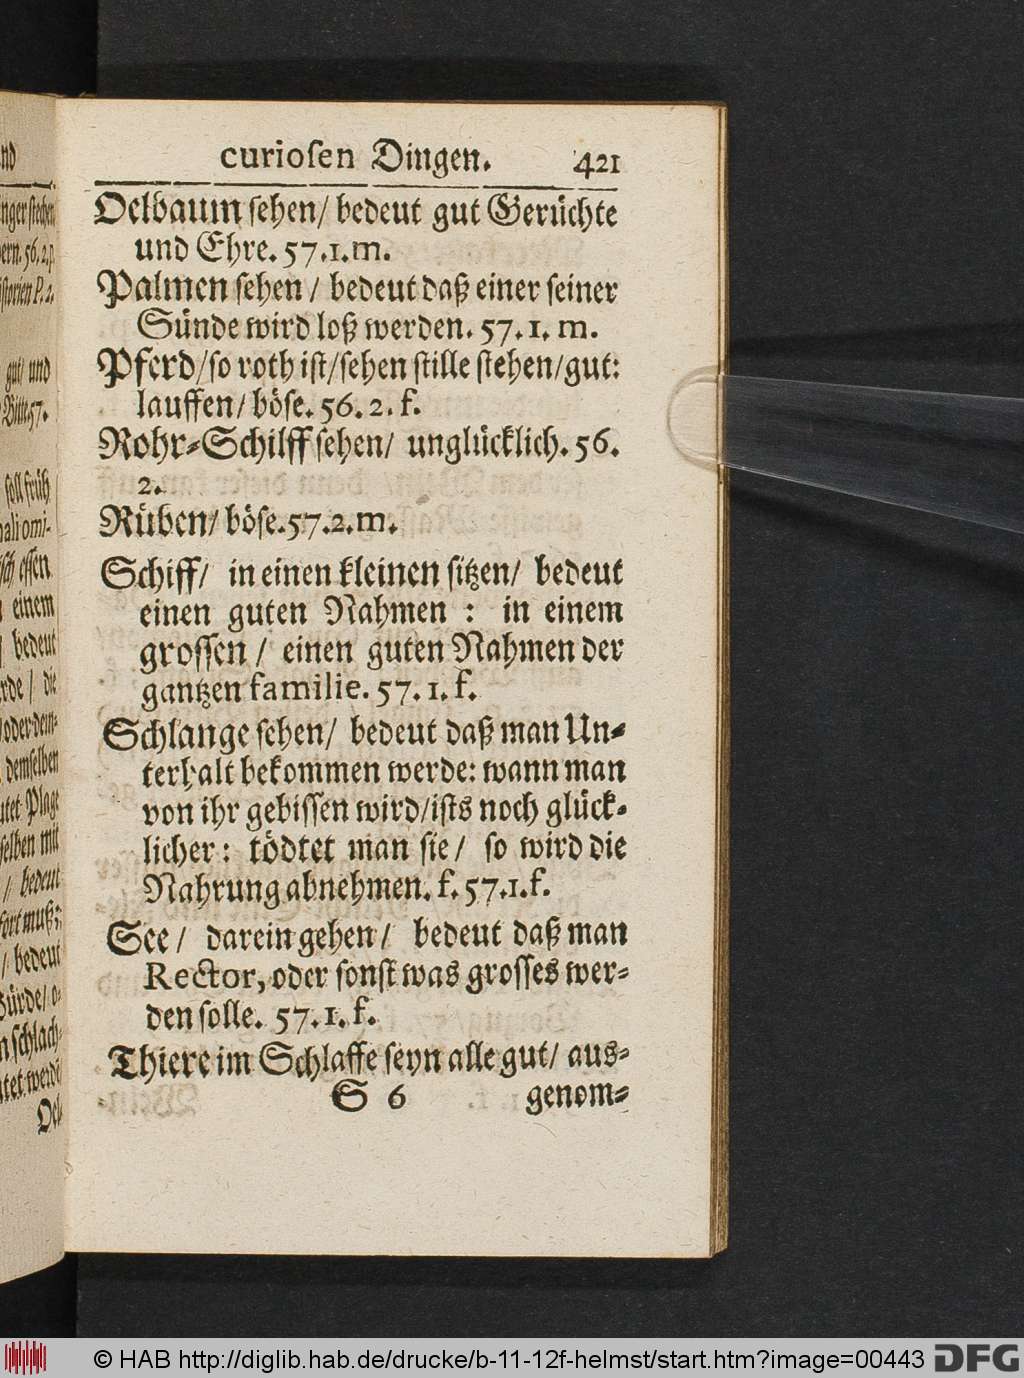 curiosen Dingen. 421
Oelbaum sehen/ bedeut gut Gerüchte
und Ehre. 57.1.m.
Palmen sehen / bedeut daß einer seiner
Sünde wird loß werden. 57.1.m.
Pferd/so roth ist/sehen stille stehen/gut:
lauffen/ böse. 56.2.f.
Rohr-Schilff sehen/ unglücklich. 56.
2.
Rüben/ böse.57.2.m.
Schiff/ in einen kleinen sitzen/ bedeut
einen guten Nahmen : in einem
grossen / einen guten Nahmen der
gantzen familie. 57.1.f.
Schlange sehen/ bedeut daß man Un-
terhalt bekommen werde: wann man
von ihr gebissen wird/ists noch glück-
licher: tödtet man sie/ so wird die
Nahrung abnehmen. f. 57.1.f.
See/ darein gehen/ bedeut daß man
Rector, oder sonst was grosses wer-
den solle. 57.1.f.
Thiere im Schlaffe seyn alle gut/ aus-
S 6 genom-
© HAB http://diglib.hab.de/drucke/b-11-12f-helmst/start.htm?image=00443 DFG